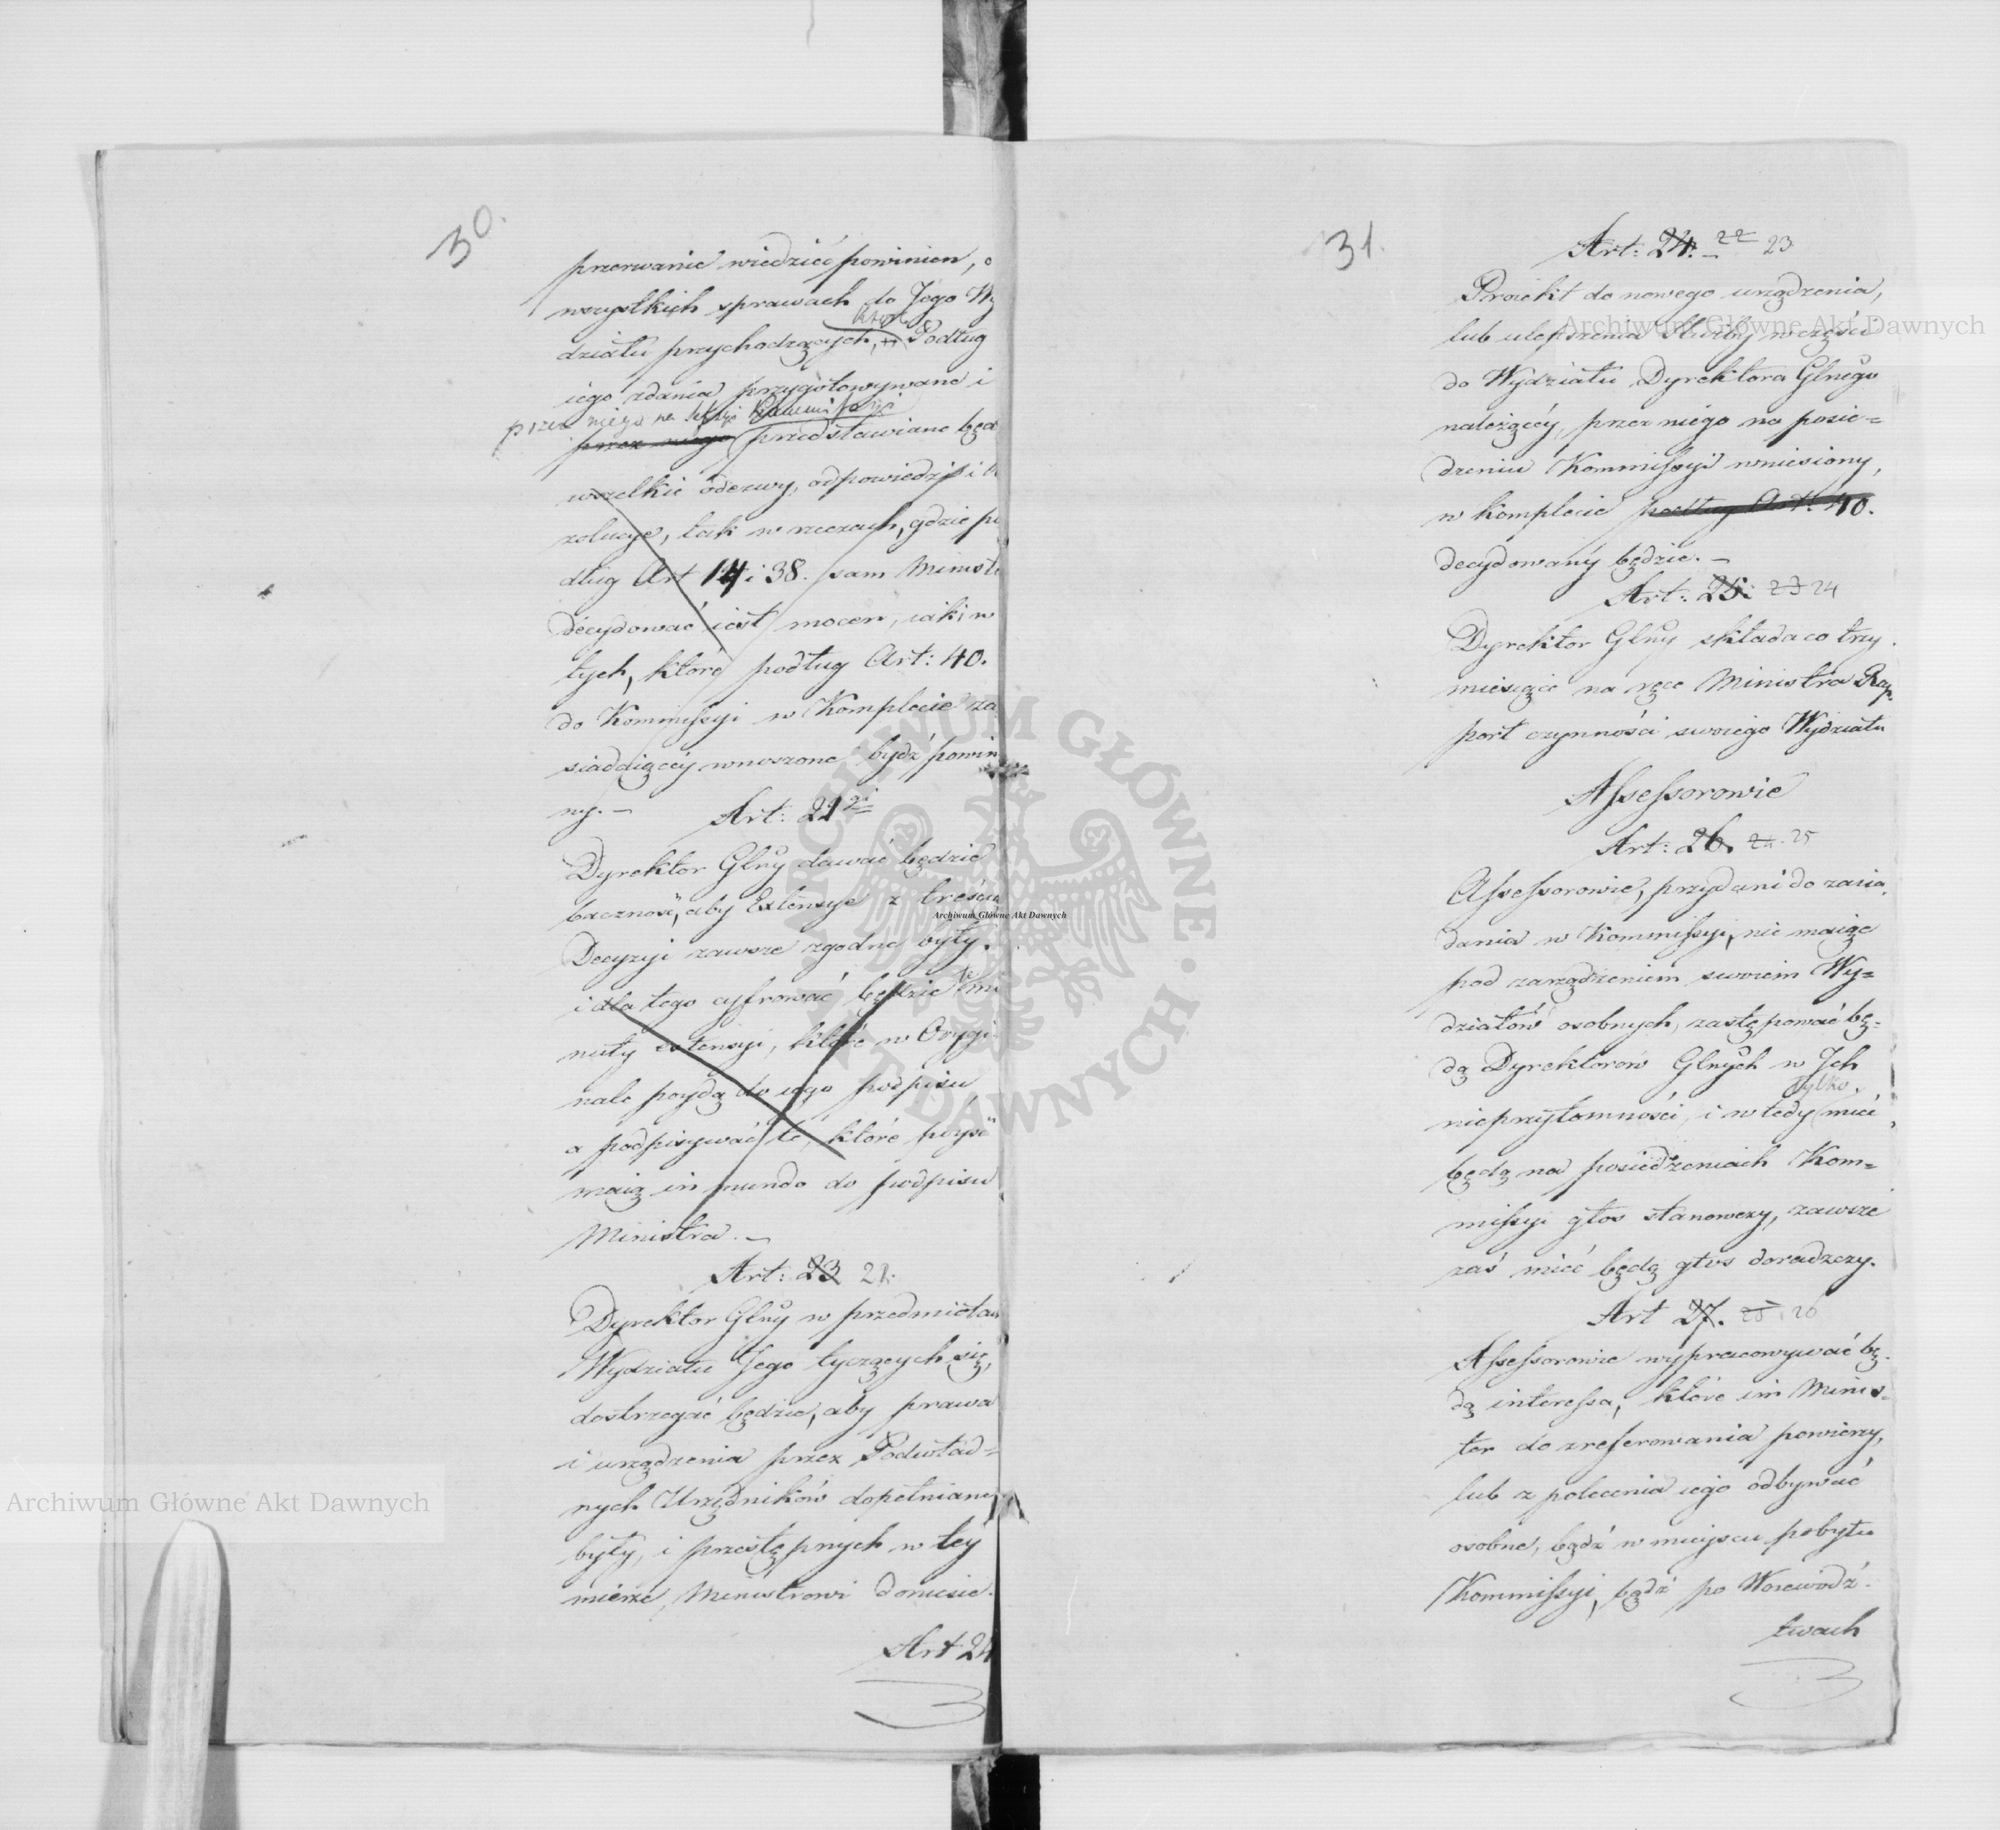 30.
przerwanie wiedzieć powinien, o
wszystkich sprawach do Jego Wy
działu przychodzących, Podług
iego zdania przygotowywane i
przez niego na Sessyi Kommissyi
przez niego przedstawiane będą
wszelkie odezwy, odpowiedzi i
zolucye, tak w rzeczach, gdzie po
dług Art 14 i 38. sam Ministe
decydować iest mocen, iak i w
tych, które podług Art: 40.
do Kommissyi w Komplecie za
siadaiącey wnoszone bydź powin
ny. —
Art: 21
Dyrektor Glny dawać będzie
baczność, aby Extensye z treścią
Decyzyi zawsze zgodne były,
i dla tego cyfrować będzie mi
nuty extensyi, które w Orygi
nale poydą do iego podpisu
a podpisywać te, które przyść
maią in mundo do podpisu
Ministra. —
Art: 23 21.
Dyrektor Glny w przedmiotach
Wydziału Jego tyczących się,
dostrzegać będzie, aby prawa
i urządzenia przez Podwład=
nych Urzędników dopełniane
były, i przestępnych w tey
mierze, Ministrowi doniesie.
Art 24
31.
Art: 24. 22 23
Proiekt do nowego urządzenia,
lub ulepszenia Służby w części
do Wydziału Dyrektora Glnego
należącey, przez niego na posie=
dzeniu Kommissyi wniesiony,
w komplecie podług Art: 40.
decydowany będzie. —
Art: 25: 23 24
Dyrektor Glny składa co trzy
miesiące na ręce Ministra Rap.
port czynności swoiego Wydziału
Assessorowie
Art: 26. 24. 25
Assessorowie, przydani do zasia.
dania w Kommissyi, nie maiąc
pod zarządzeniem swoiem Wy=
działów osobnych, zastępować bę=
dą Dyrektorów Glnych w Ich
nieprzytomności, i wtedy tylko mieć
będą na posiedzeniach Kom=
missyi głos stanowczy, zawsze
zaś mieć będą głos doradczy.
Art 27. 25. 26
Assessorowie wypracowywać bę.
dą interessa, które im Minis=
ter do zreferowania powierzy,
lub z polecenia iego odbywać
osobne, bądź w mieyscu pobytu
Kommissyi, bądź po Woiewódz.
twach
Archiwum Główne Akt Dawnych
Archiwum Główne Akt Dawnych
Archiwum Główne Akt Dawnych
ARCHIWUM GŁÓWNE · AKT DAWNYCH ·